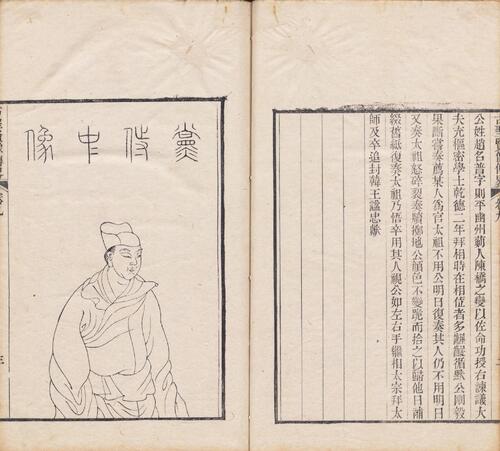 公姓趙名普字則平幽州薊人陳橋之變以佐命功授右諫議大
夫充樞密學士乾德二年拜相時在相位者多齷齪循默公剛毅
果斷嘗奏薦某人爲官太祖不用公明日復奏其人仍不用明日
又奏太祖怒碎裂奏牘擲地公顏色不變跪而拾之以歸他日補
綴舊紙復奏太祖乃悟卒用其人視公如左右手繼相太宗拜太
師及卒追封韓王諡忠獻
黨侍中像
卷九